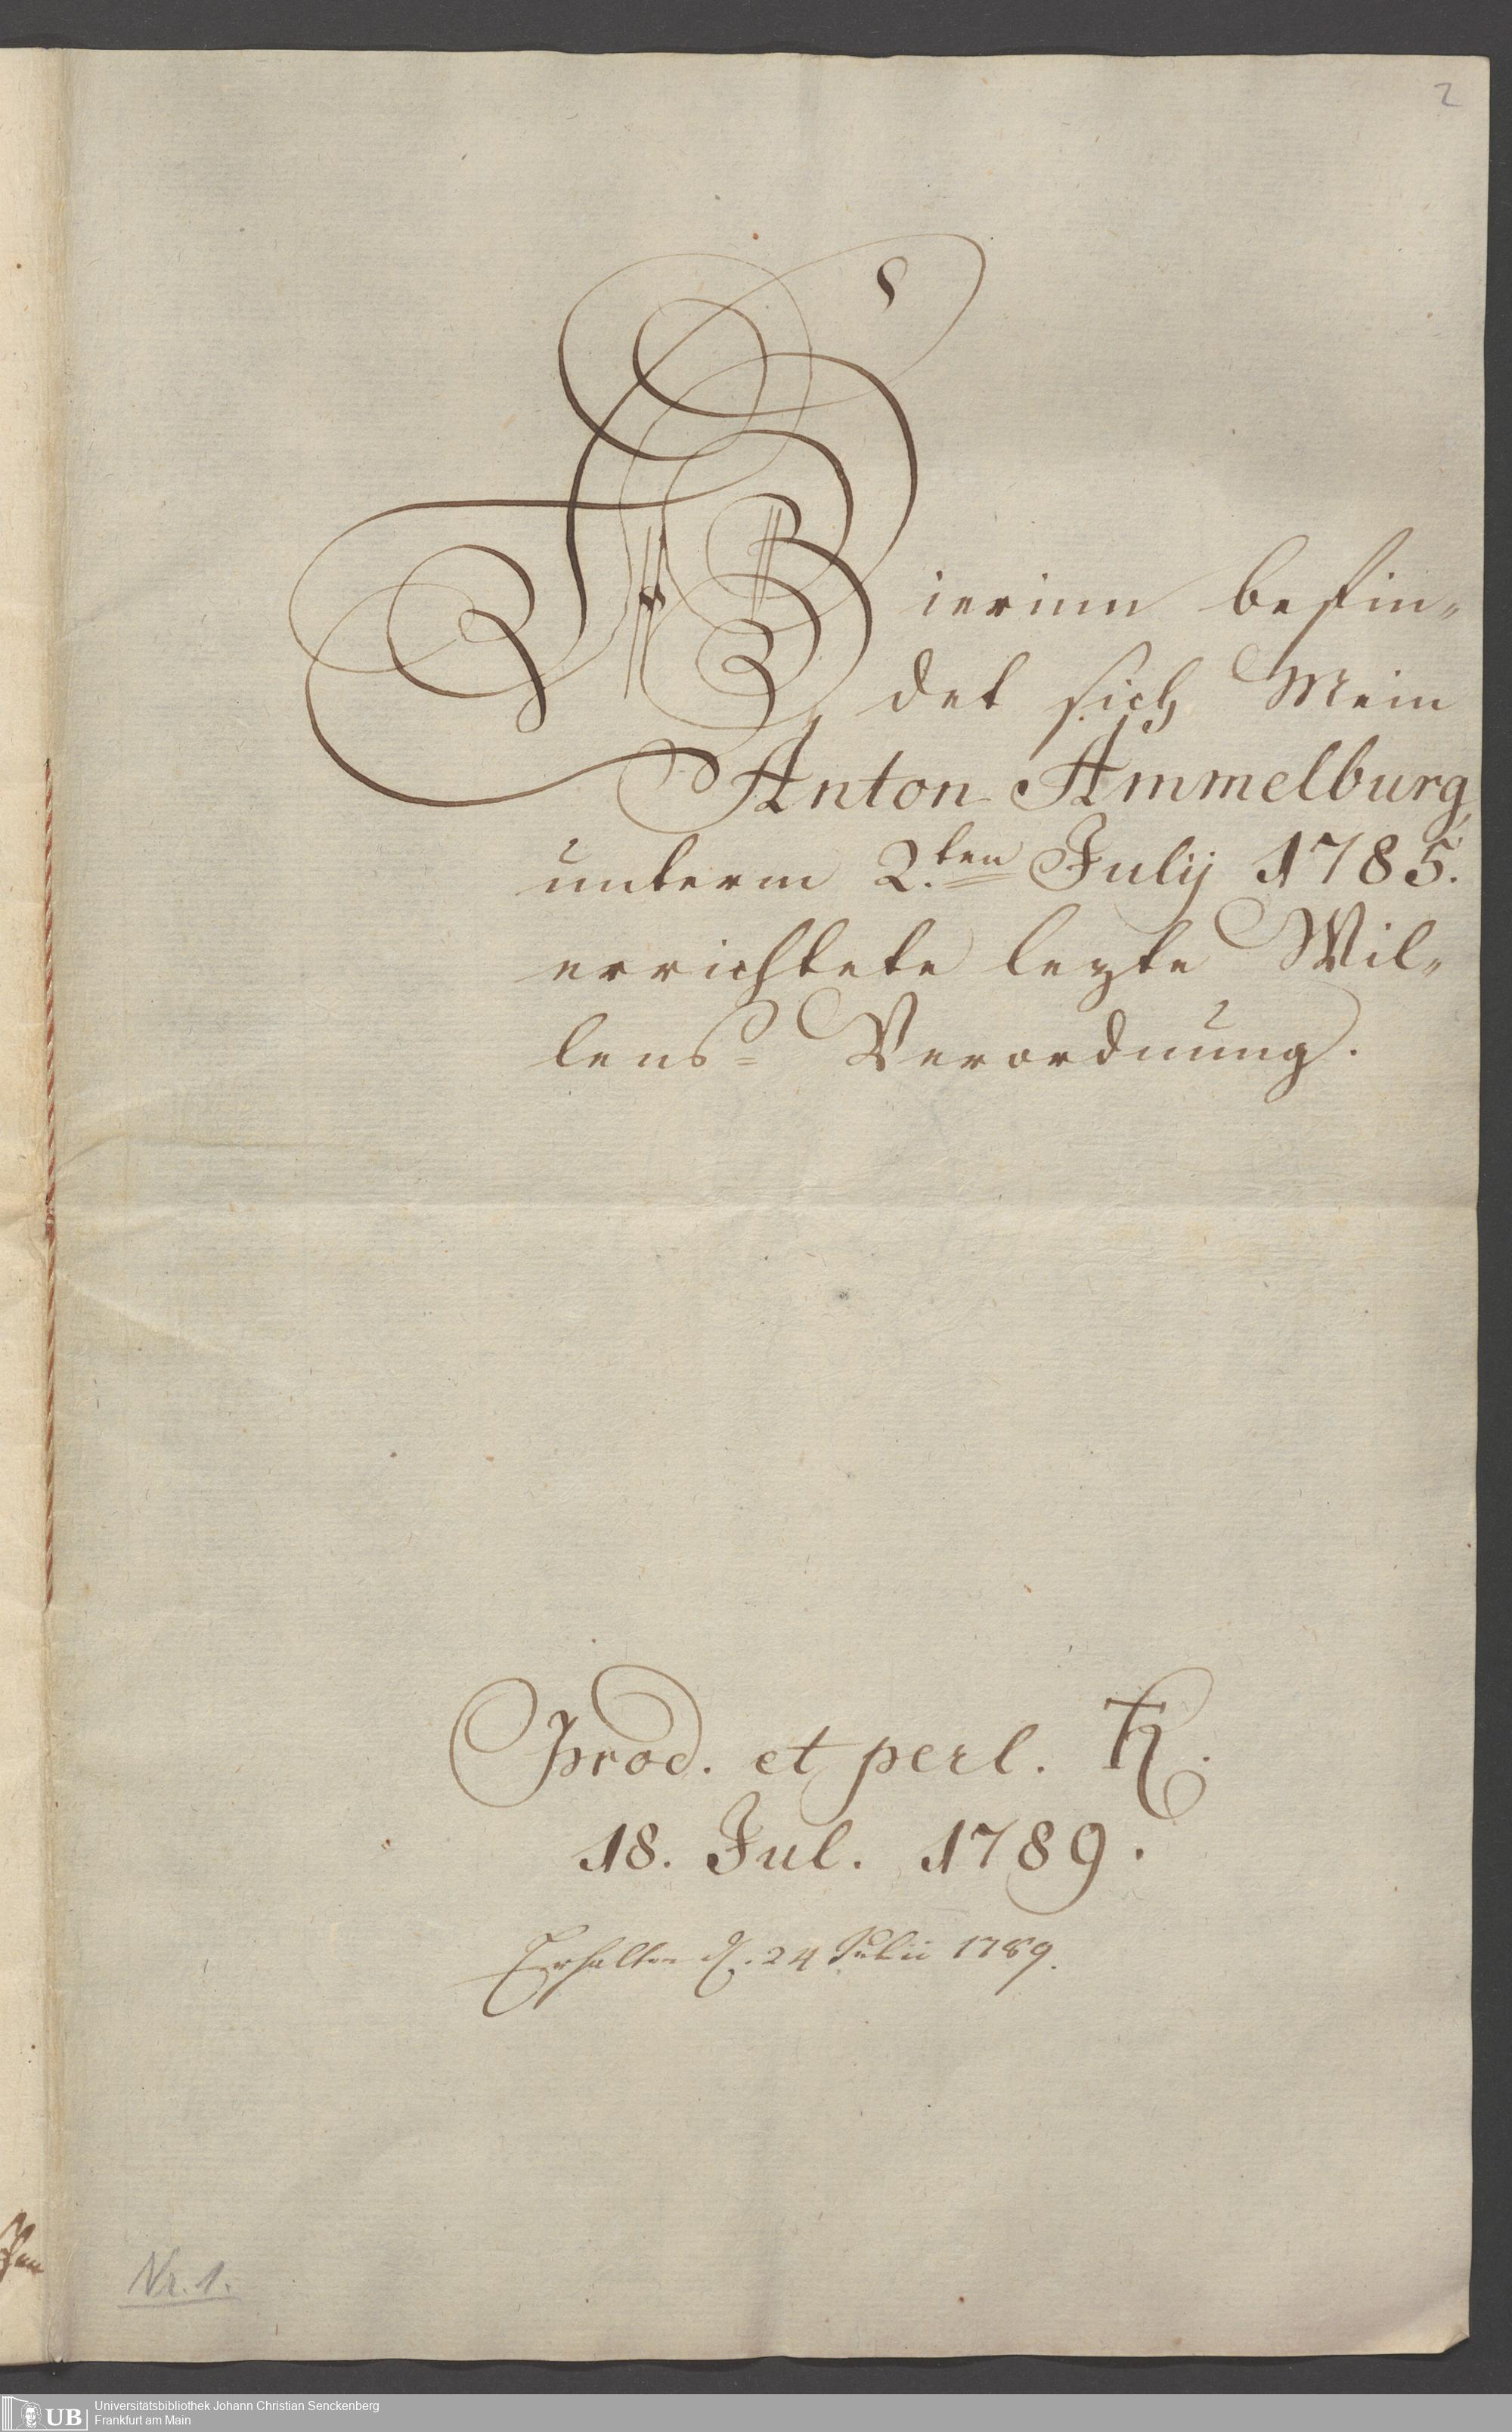 2
Hierinn befin„
det sich Mein
Anton Ammelburg,
unterm 2.ten Julij 1785.
errichtete lezte Wil„
lens= Verordnung.
Prod. et perl.
18. Jul. 1789.
Erhalten d. 24 Julii 1789.
Nr. 1.
UB
Universitätsbibliothek Johann Christian Senckenberg
Frankfurt am Main